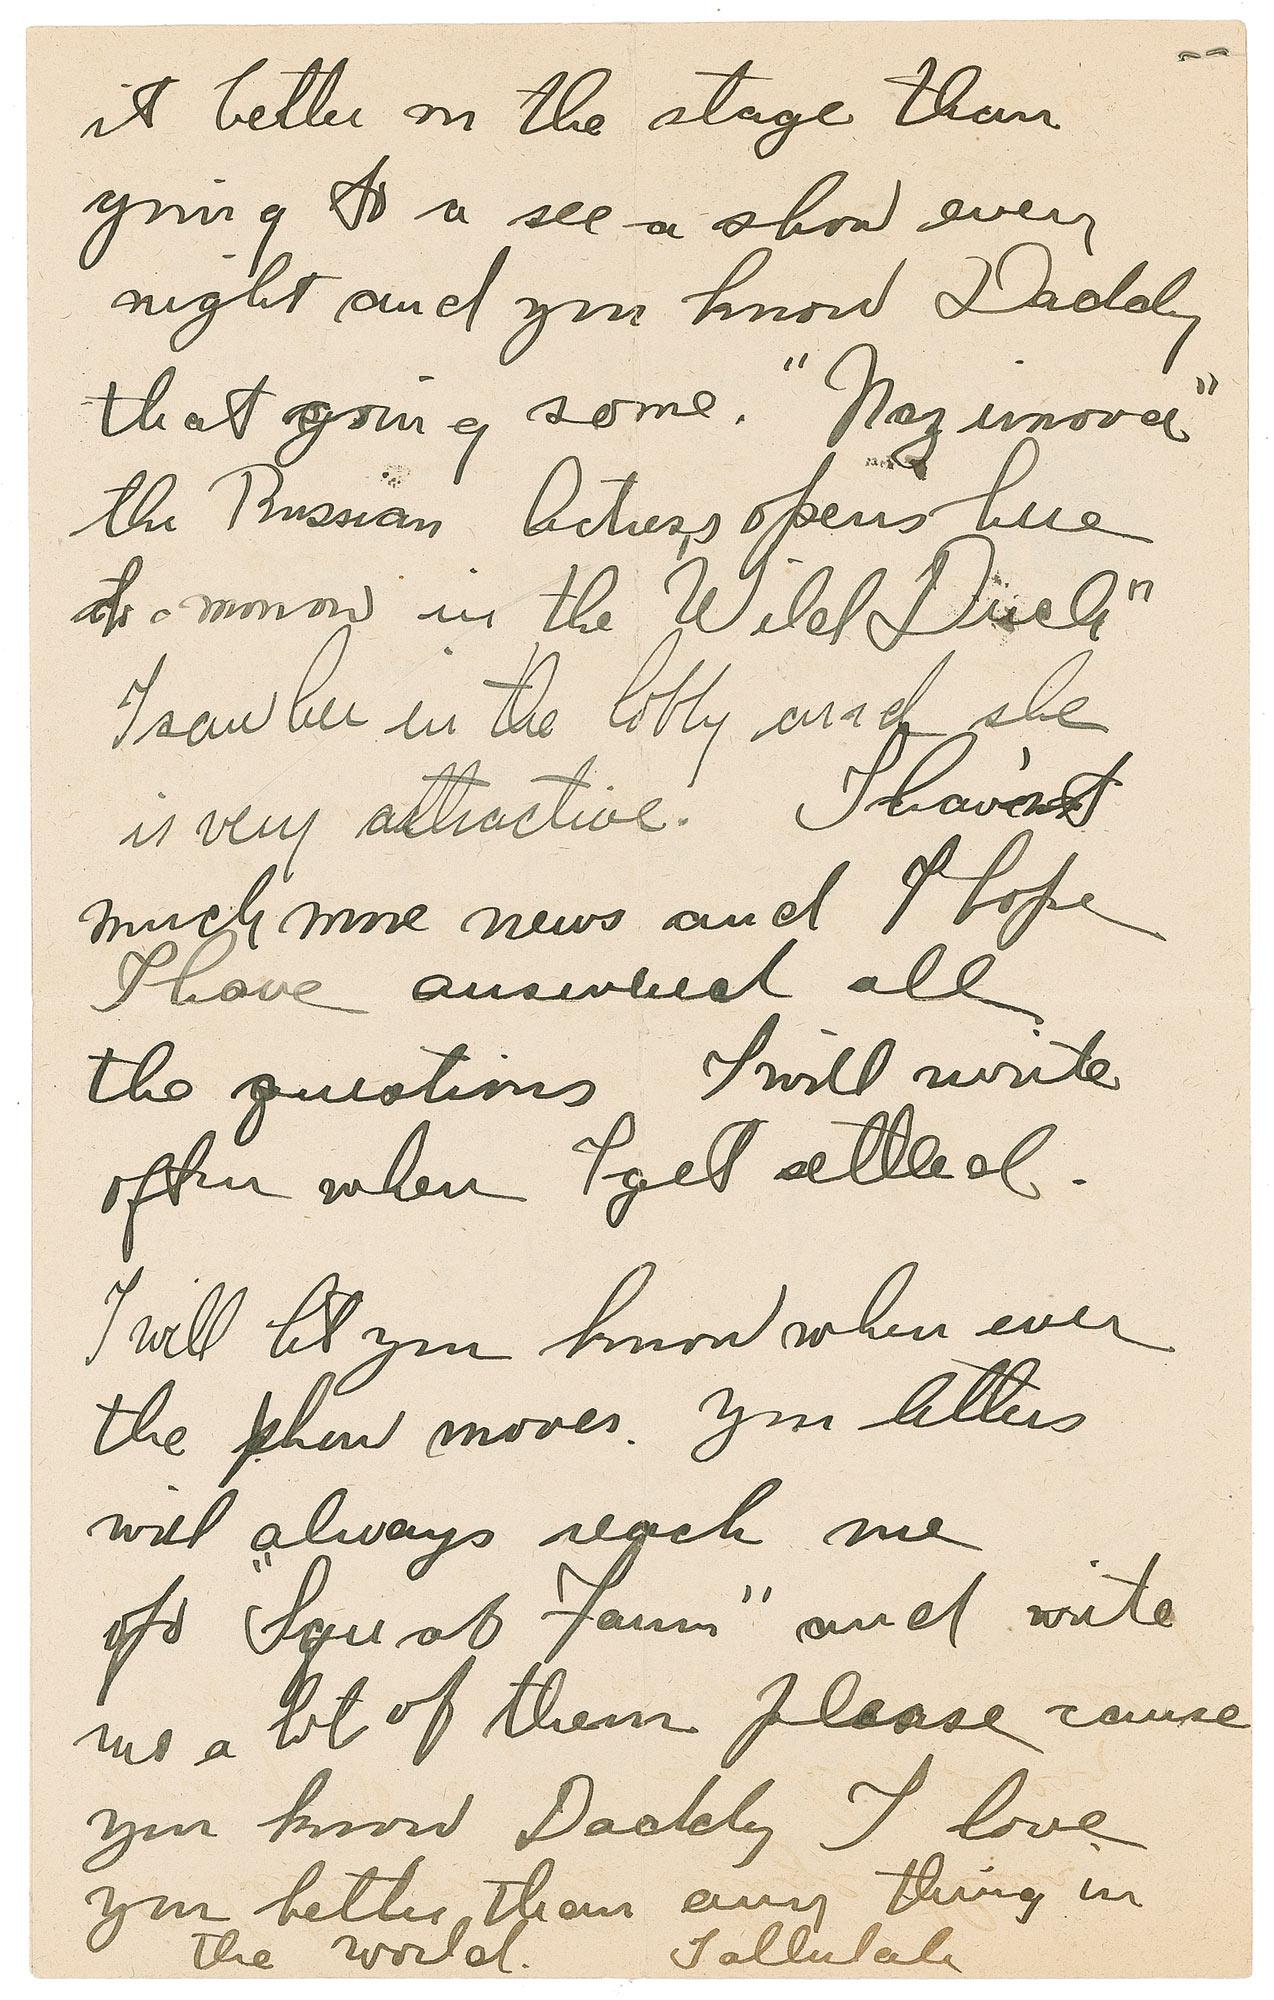 it better on the stage than
going to a see a show every
night and you know Daddy
that going some. "Nazimova"
the Russian Actress, opens here
to-morrow in the "Wild Duck"
I saw her in the lobby and she
is very attractive. I haven't
much more news and I hope
I have answered all
the questions I will write
often when I get settled.
I will let you know when ever
the show moves. You letters
will always reach me
of "Squab Farm" and write
me a lot of them please cause
you know Daddy I love
you better than any thing in
the world. Tallulah